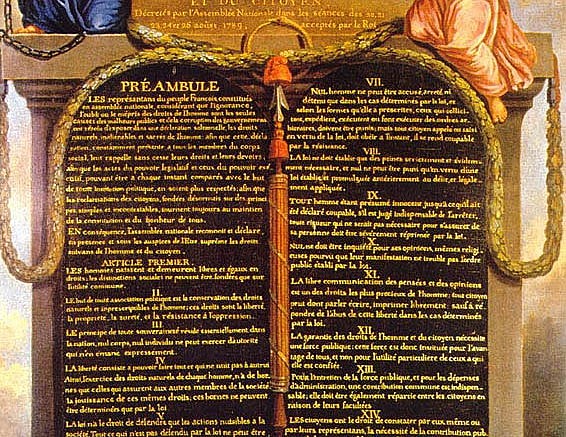 ET DU CITOYEN
Décretés par l'Assemblée Nationale dans les séances des 20, 21
23, 24 et 26 août 1789, acceptés par le Roi
PRÉAMBULE
LES représentans du peuple François constitués
en assemblée nationale, considérant que l'ignorance,
l'oubli ou le mépris des droits de l'homme sont les seules
causes des malheurs publics et de la corruption des gouvernemens
ont résolu d'exposer dans une déclaration solemnelle, les droits
naturels, inaliénables et sacrés de l'homme: afin que cette décla
ration, constamment présente à tous les membres du corps
social, leur rappelle sans cesse leurs droits et leurs devoirs,
afin que les actes du pouvoir législatif et ceux du pouvoir exé
cutif, pouvant être à chaque instant comparés avec le but
de toute institution politique, en soient plus respectés; afin que
les réclamations des citoyens, fondées désormais sur des princi
pes simples et incontestables, tournent toujours au maintien
de la constitution et du bonheur de tous.
EN conséquence, l'assemblée nationale reconnoit et déclare,
en présence et sous les auspices de l'Etre suprême les droits
suivans de l'homme et du citoyen.
ARTICLE PREMIER.
LES hommes naissent et demeurent libres et égaux en
droits; les distinctions sociales ne peuvent être fondées que sur
l'utilité commune.
II.
LE but de toute association politique est la conservation des droits
naturels et imprescriptibles de l'homme; ces droits sont la liberté,
la propriété, la sureté, et la résistance à l'oppression.
III.
LE principe de toute souveraineté réside essentiellement dans
la nation, nul corps, nul individu ne peut exercer d'autorité
qui n'en émane expressément.
IV
LA liberté consiste à pouvoir faire tout ce qui ne nuit pas à autrui
Ainsi, l'exercice des droits naturels de chaque homme, n'a de bor
nes que celles qui assurent aux autres membres de la société
la jouissance de ces mêmes droits; ces bornes ne peuvent
être déterminées que par la loi
V
LA loi n'a le droit de défendre que les actions nuisibles à la
société. Tout ce qui n'est pas défendu par la loi ne peut être
VII.
NUL homme ne peut être accusé, arreté ni
détenu que dans les cas déterminés par la loi, et
selon les formes qu'elle a prescrites, ceux qui sollici
tent, expédient, exécutent ou font exécuter des ordres ar
bitraires, doivent être punis; mais tout citoyen appelé ou saisi
en vertu de la loi, doit obéir à l'instant, il se rend coupable
par la résistance.
VIII.
LA loi ne doit établir que des peines strictement et évidem
ment nécessaires, et nul ne peut être puni qu'en vertu d'une
loi établie et promulguée antérieurement au délit, et légale
ment appliquée.
IX.
TOUT homme étant présumé innocent jusqu'à ce qu'il ait
été déclaré coupable, s'il est jugé indispensable de l'arrêter,
toute rigueur qui ne serait pas nécessaire pour s'assurer de
sa personne doit être sévèrement réprimée par la loi.
X.
NUL ne doit être inquiété pour ses opinions, mêmes religi
euses pourvu que leur manifestation ne trouble pas l'ordre
public établi par la loi.
XI.
LA libre communication des pensées et des opinions
est un des droits les plus précieux de l'homme; tout citoyen
peut donc parler écrire, imprimer librement: sauf à ré
pondre de l'abus de cette liberté dans les cas déterminés
par la loi.
XII.
LA garantie des droits de l'homme et du citoyen nécessite
une force publique; cette force est donc instituée pour l'avan
tage de tous, et non pour l'utilité particulière de ceux a qui
elle est confiée.
XIII.
Pour l'entretien de la force publique, et pour les dépenses
d'administration, une contribution commune est indispen-
sable; elle doit être également répartie entre les citoyens en
raison de leurs facultées
XIV.
LES citoyens ont le droit de constater par eux même ou
par leurs représentans, la nécessité de la contribution pub